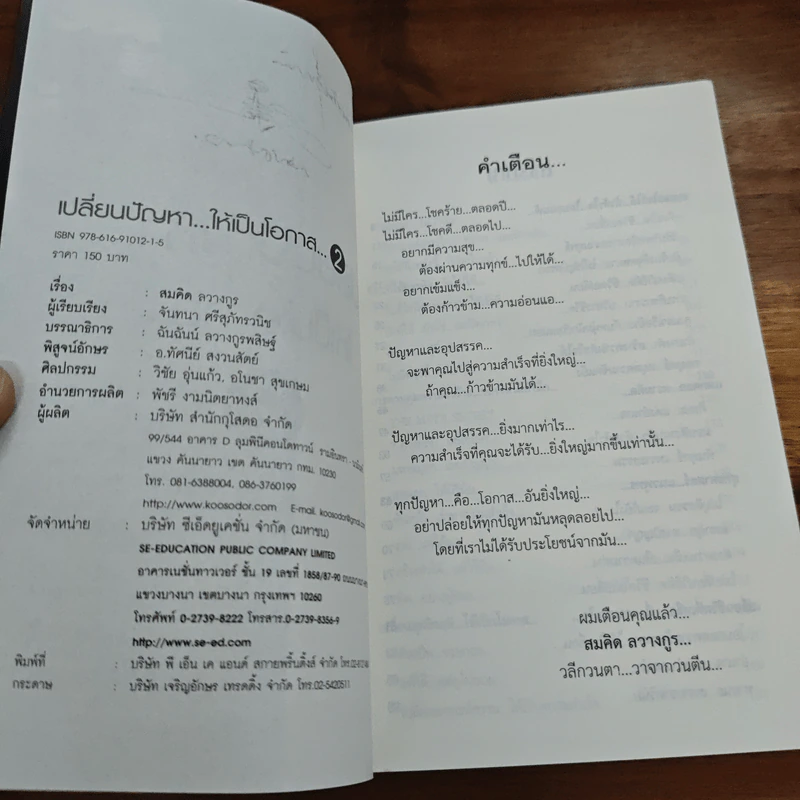 เปลี่ยนปัญหา...ให้เป็นโอกาส... 2
ISBN 978-616-91012-1-5
ราคา 150 บาท
เรื่อง : สมคิด ลวางกูร
ผู้เรียบเรียง : จันทนา ศรีสุภัทรวนิช
บรรณาธิการ : ฉันฉันน์ ลวางกูรพสิษฐ์
พิสูจน์อักษร : อ.ทัศนีย์ สงวนสัตย์
ศิลปกรรม : วิชัย อุ่นแก้ว, อโนชา สุขเกษม
อำนวยการผลิต : พัชรี งามนิตยาหงส์
ผู้ผลิต : บริษัท สำนักกูโสดอ จำกัด
99/544 อาคาร D ลุมพินีคอนโดทาวน์ รามอินทรา -
แขวง คันนายาว เขต คันนายาว กทม. 10230
โทร. 081-6388004, 086-3760199
http://www.koosodor.com E-mail. koosodor@gmail.com
จัดจำหน่าย : บริษัท ซีเอ็ดยูเคชั่น จำกัด (มหาชน)
SE-EDUCATION PUBLIC COMPANY LIMITED
อาคารเนชั่นทาวเวอร์ ชั้น 19 เลขที่ 1858/87-90
แขวงบางนา เขตบางนา กรุงเทพฯ 10260
โทรศัพท์ 0-2739-8222 โทรสาร.0-2739-8356-9
http://www.se-ed.com
พิมพ์ที่ : บริษัท พี เอ็น เค แอนด์ สกายพริ้นติ้งส์ จำกัด
กระดาษ : บริษัท เจริญอักษร เทรดดิ้ง จำกัด โทร.02-5420511
คำเตือน...
ไม่มีใคร...โชคร้าย...ตลอดปี...
ไม่มีใคร...โชคดี...ตลอดไป...
อยากมีความสุข...
ต้องผ่านความทุกข์...ไปให้ได้...
อยากเข้มแข็ง...
ต้องก้าวข้าม...ความอ่อนแอ...
ปัญหาและอุปสรรค...
จะพาคุณไปสู่ความสำเร็จที่ยิ่งใหญ่...
ถ้าคุณ...ก้าวข้ามมันได้...
ปัญหาและอุปสรรค...ยิ่งมากเท่าไร...
ความสำเร็จที่คุณจะได้รับ...ยิ่งใหญ่มากขึ้นเท่านั้น...
ทุกปัญหา...คือ...โอกาส...อันยิ่งใหญ่...
อย่าปล่อยให้ทุกปัญหามันหลุดลอยไป...
โดยที่เราไม่ได้รับประโยชน์จากมัน...
ผมเตือนคุณแล้ว...
สมคิด ลวางกูร...
วลีกวนตา...วาจากวนตีน...